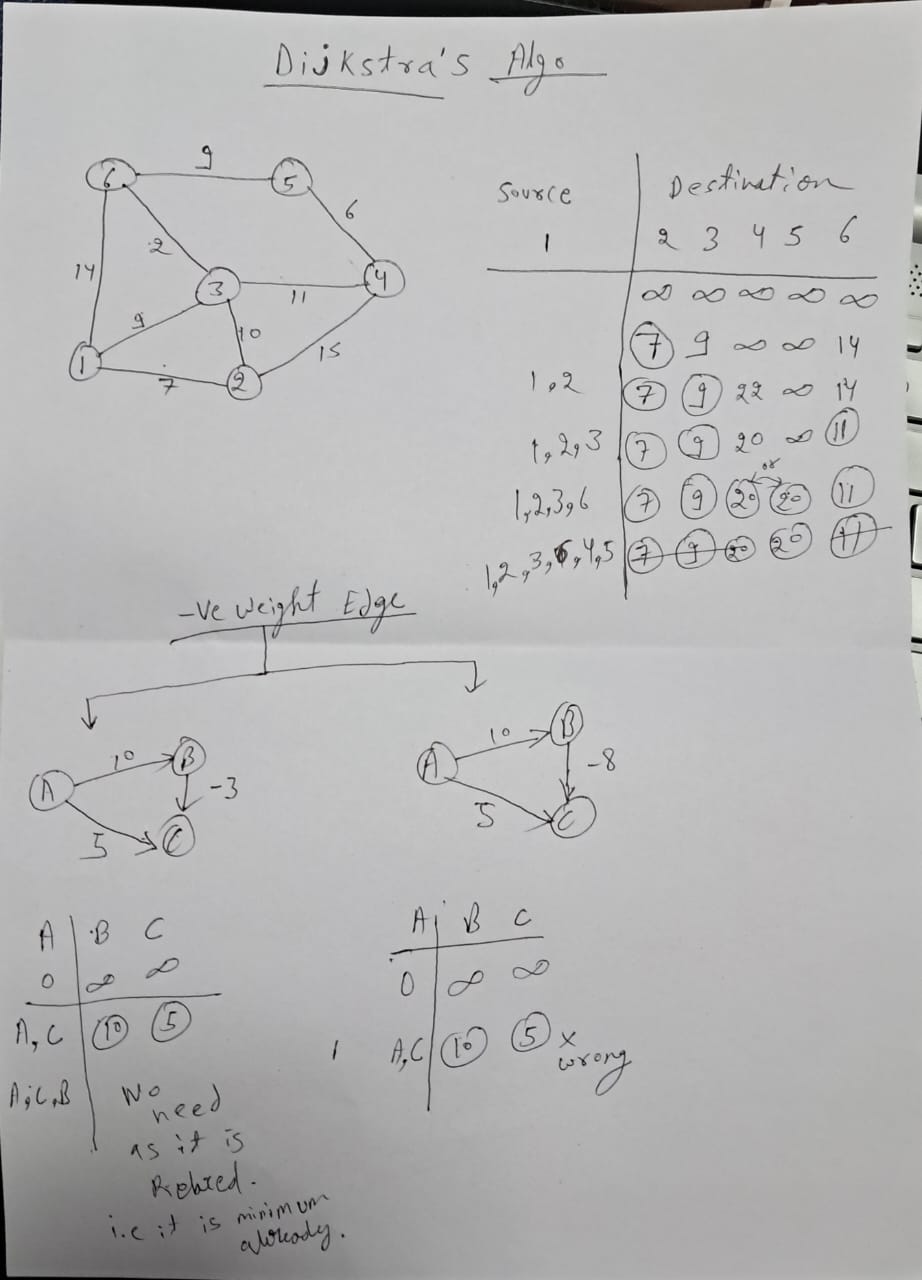 Dijkstra's Algo
6 9 5
6
14 2
3 11 4
9 10
1 7 2 15
Source Destination
1 2 3 4 5 6
∞ ∞ ∞ ∞ ∞
7 9 ∞ ∞ 14
1,2 7 9 22 ∞ 14
1,2,3 7 9 20 ∞ 11
or
1,2,3,6 7 9 20 20 11
1,2,3,6,4,5 7 9 20 20 11
-ve weight Edge
A 10 B
-3
5 C
A 10 B
-8
5 C
A B C
0 ∞ ∞
A,C 10 5
A,C,B No
need
as it is
i.e it is minimum
already.
A B C
0 ∞ ∞
A,C 10 5 x
wrong